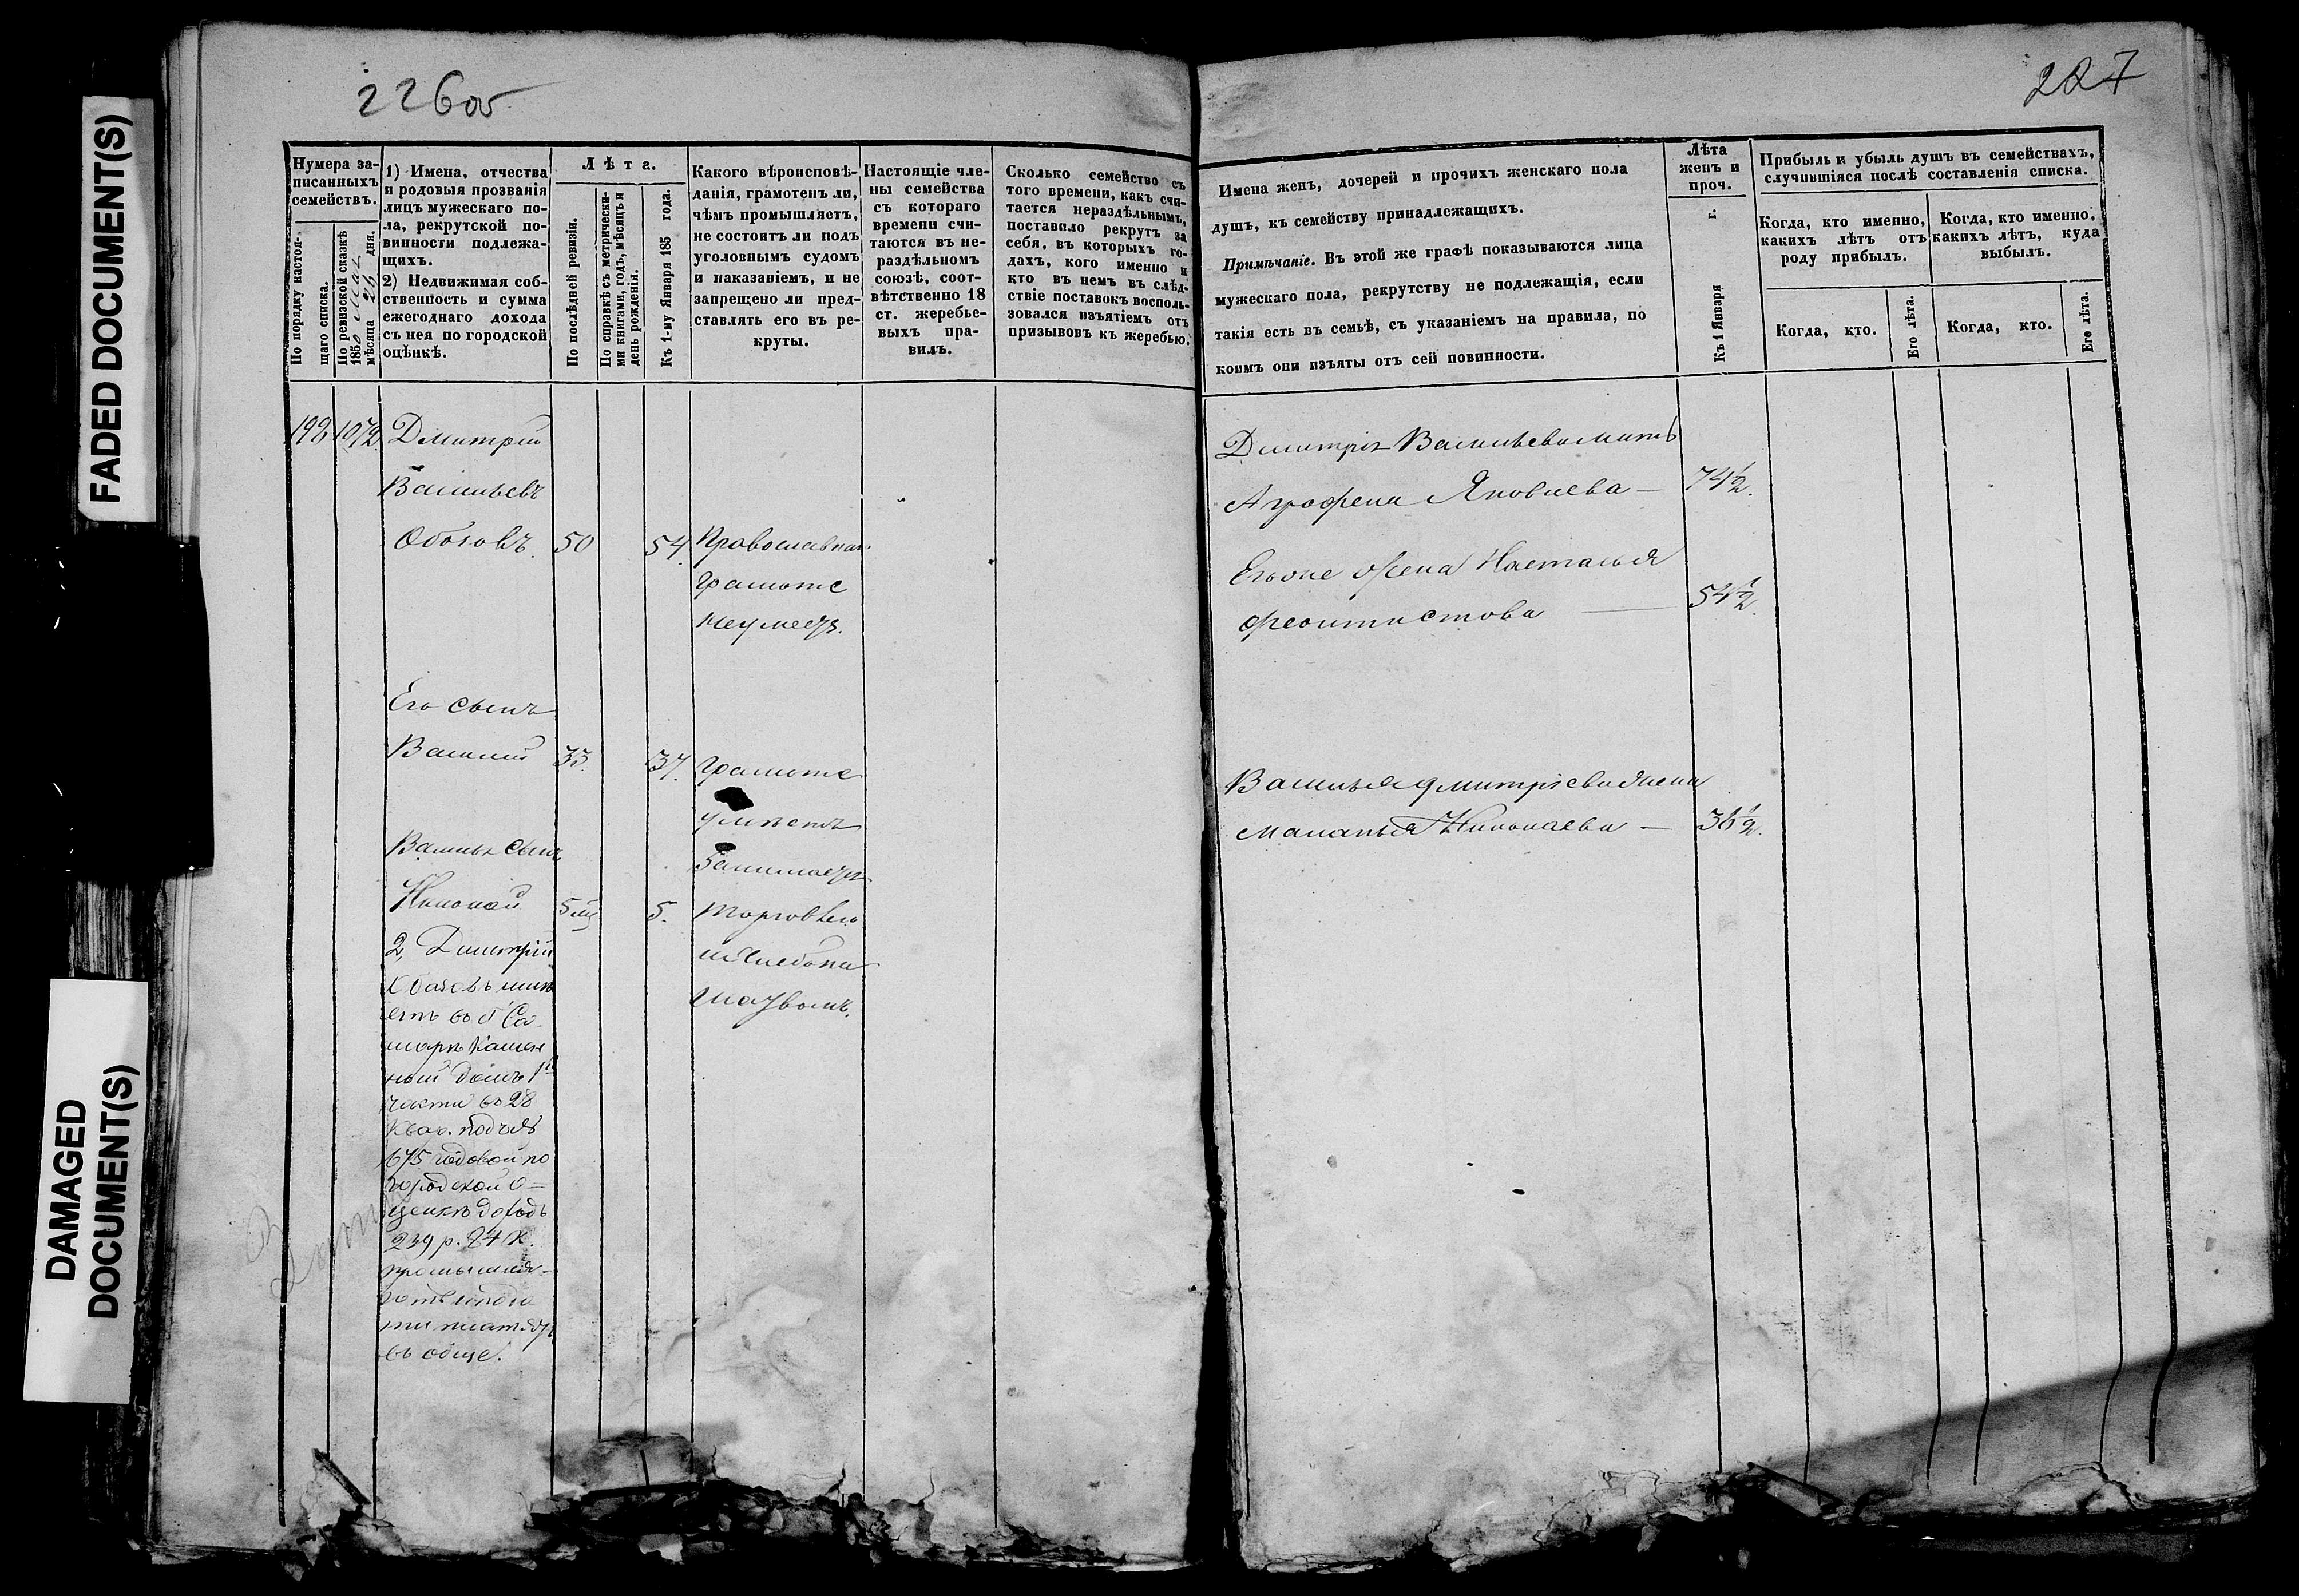 FADED DOCUMENT(S)
DAMAGED
DOCUMENT(S)
226об
Нумера за-
писанныхъ
семействъ.
По порядку настоя-
щаго списка.
По ревизской сказкѣ
1850
мѣсяца 26 дня.
1) Имена, отчества
и родовыя прозванія
лицъ мужескаго по-
ла, рекрутской по-
винности подлежа-
щихъ.
2) Недвижимая соб-
ственность и сумма
ежегоднаго дохода
съ нея по городской
оцѣнкѣ.
Лѣта.
По послѣдней ревизіи.
По справкѣ съ метрически-
ми книгами, годъ, мѣсяцъ и
день рожденія.
Къ 1-му Января 185 года.
Какого вѣроисповѣ-
данія, грамотенъ ли,
чѣмъ промышляетъ,
не состоитъ ли подъ
уголовнымъ судомъ
и наказаніемъ, и не
запрещено ли пред-
ставлять его въ ре-
круты.
Настоящіе чле-
ны семейства
съ котораго
времени счи-
таются въ не-
раздѣльномъ
союзѣ, соот-
вѣтственно 18
ст. жеребье-
выхъ пра-
вилъ.
Сколько семейство съ
того времени, какъ счи-
тается нераздѣльнымъ,
поставило рекрутъ за
себя, въ которыхъ го-
дахъ, кого именно и
кто въ немъ въ слѣд-
ствіе поставокъ восполь-
зовался изъятіемъ отъ
призывовъ къ жеребью.
198 1072 Дмитрій
Васильевъ
Обозовъ. 50 54. Православнаго
грамоте
неумеетъ.
Его сынъ
Василій 33. 37. Грамоте
умѣетъ
Занимается
Василья сынъ
Николай 5 5. торговлею
2, Дмитрій
Обозовъ имѣ
етъ въ г Са
марѣ Камен
ный домъ 1й
части въ 28
квар. под №
675 годовой по
городской о-
ценкѣ доходъ
239 р. 84 к.
въ обще.
227
Имена женъ, дочерей и прочихъ женскаго пола
душъ, къ семейству принадлежащихъ.
Примѣчаніе. Въ этой же графѣ показываются лица
мужескаго пола, рекрутству не подлежащія, если
такія есть въ семьѣ, съ указаніемъ на правила, по
коимъ они изъяты отъ сей повинности.
Лѣта
женъ и
проч.
Къ 1 Января г.
Прибыль и убыль душъ въ семействахъ,
случившіяся послѣ составленія списка.
Когда, кто именно,
какихъ лѣтъ отъ
роду прибылъ.
Когда, кто именно,
какихъ лѣтъ, куда
выбылъ.
Когда, кто.
Его лѣта.
Когда, кто.
Его лѣта.
Дмитрія Васильева мать
Аграфена Яковлева — 74½.
Егоже жена Наталья
Феоктистова — 54½.
Василья Дмитріева жена
Маланья Николаева — 36½.